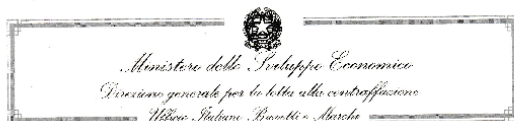 Ministero dello Sviluppo Economico
Direzione generale per la lotta alla contraffazione
Ufficio Italiano Brevetti e Marchi